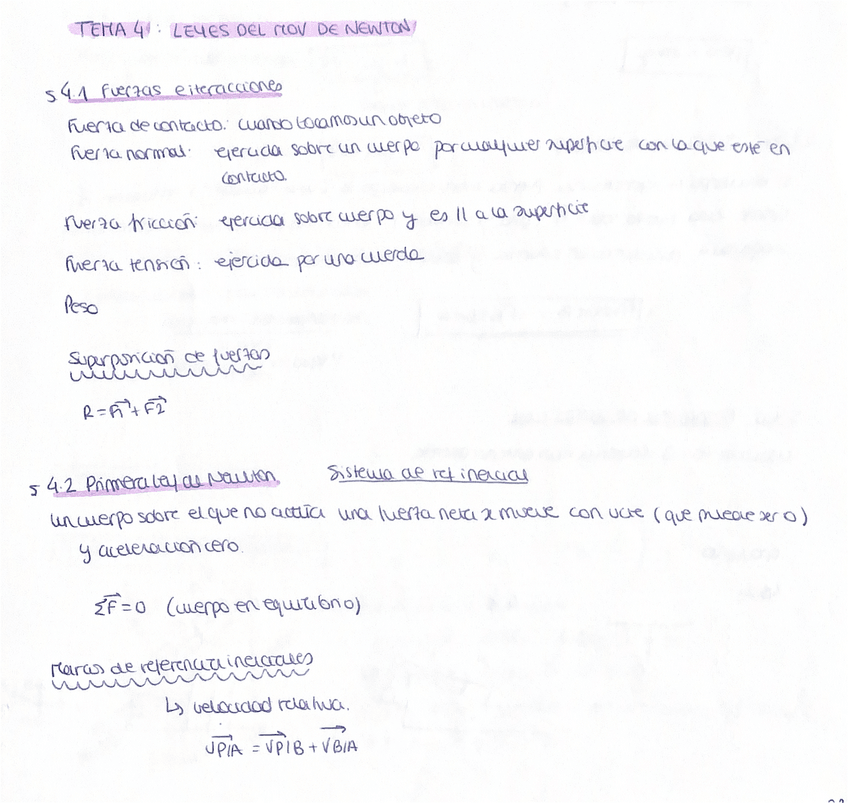 TEMA 4: LEYES DEL MOV DE NEWTON
s 4.1 Fuerzas e iteracciones
Fuerza de contacto: cuando tocamos un objeto
Fuerza normal: ejercida sobre un cuerpo por cualquier superficie con la que esté en
contacto.
Fuerza fricción: ejercida sobre cuerpo y es || a la superficie
Fuerza tensión: ejercida por una cuerda
Peso
Superposición de fuerzas
R = F1 + F2
s 4.2 Primera ley de Newton. Sistema de ref inercial
un cuerpo sobre el que no actúa una fuerza neta se mueve con vcte (que puede ser 0)
y aceleracion cero.
ΣF = 0 (cuerpo en equilibrio)
Marcos de referencia inerciales
↳ velocidad relativa.
VP/A = VP/B + VB/A